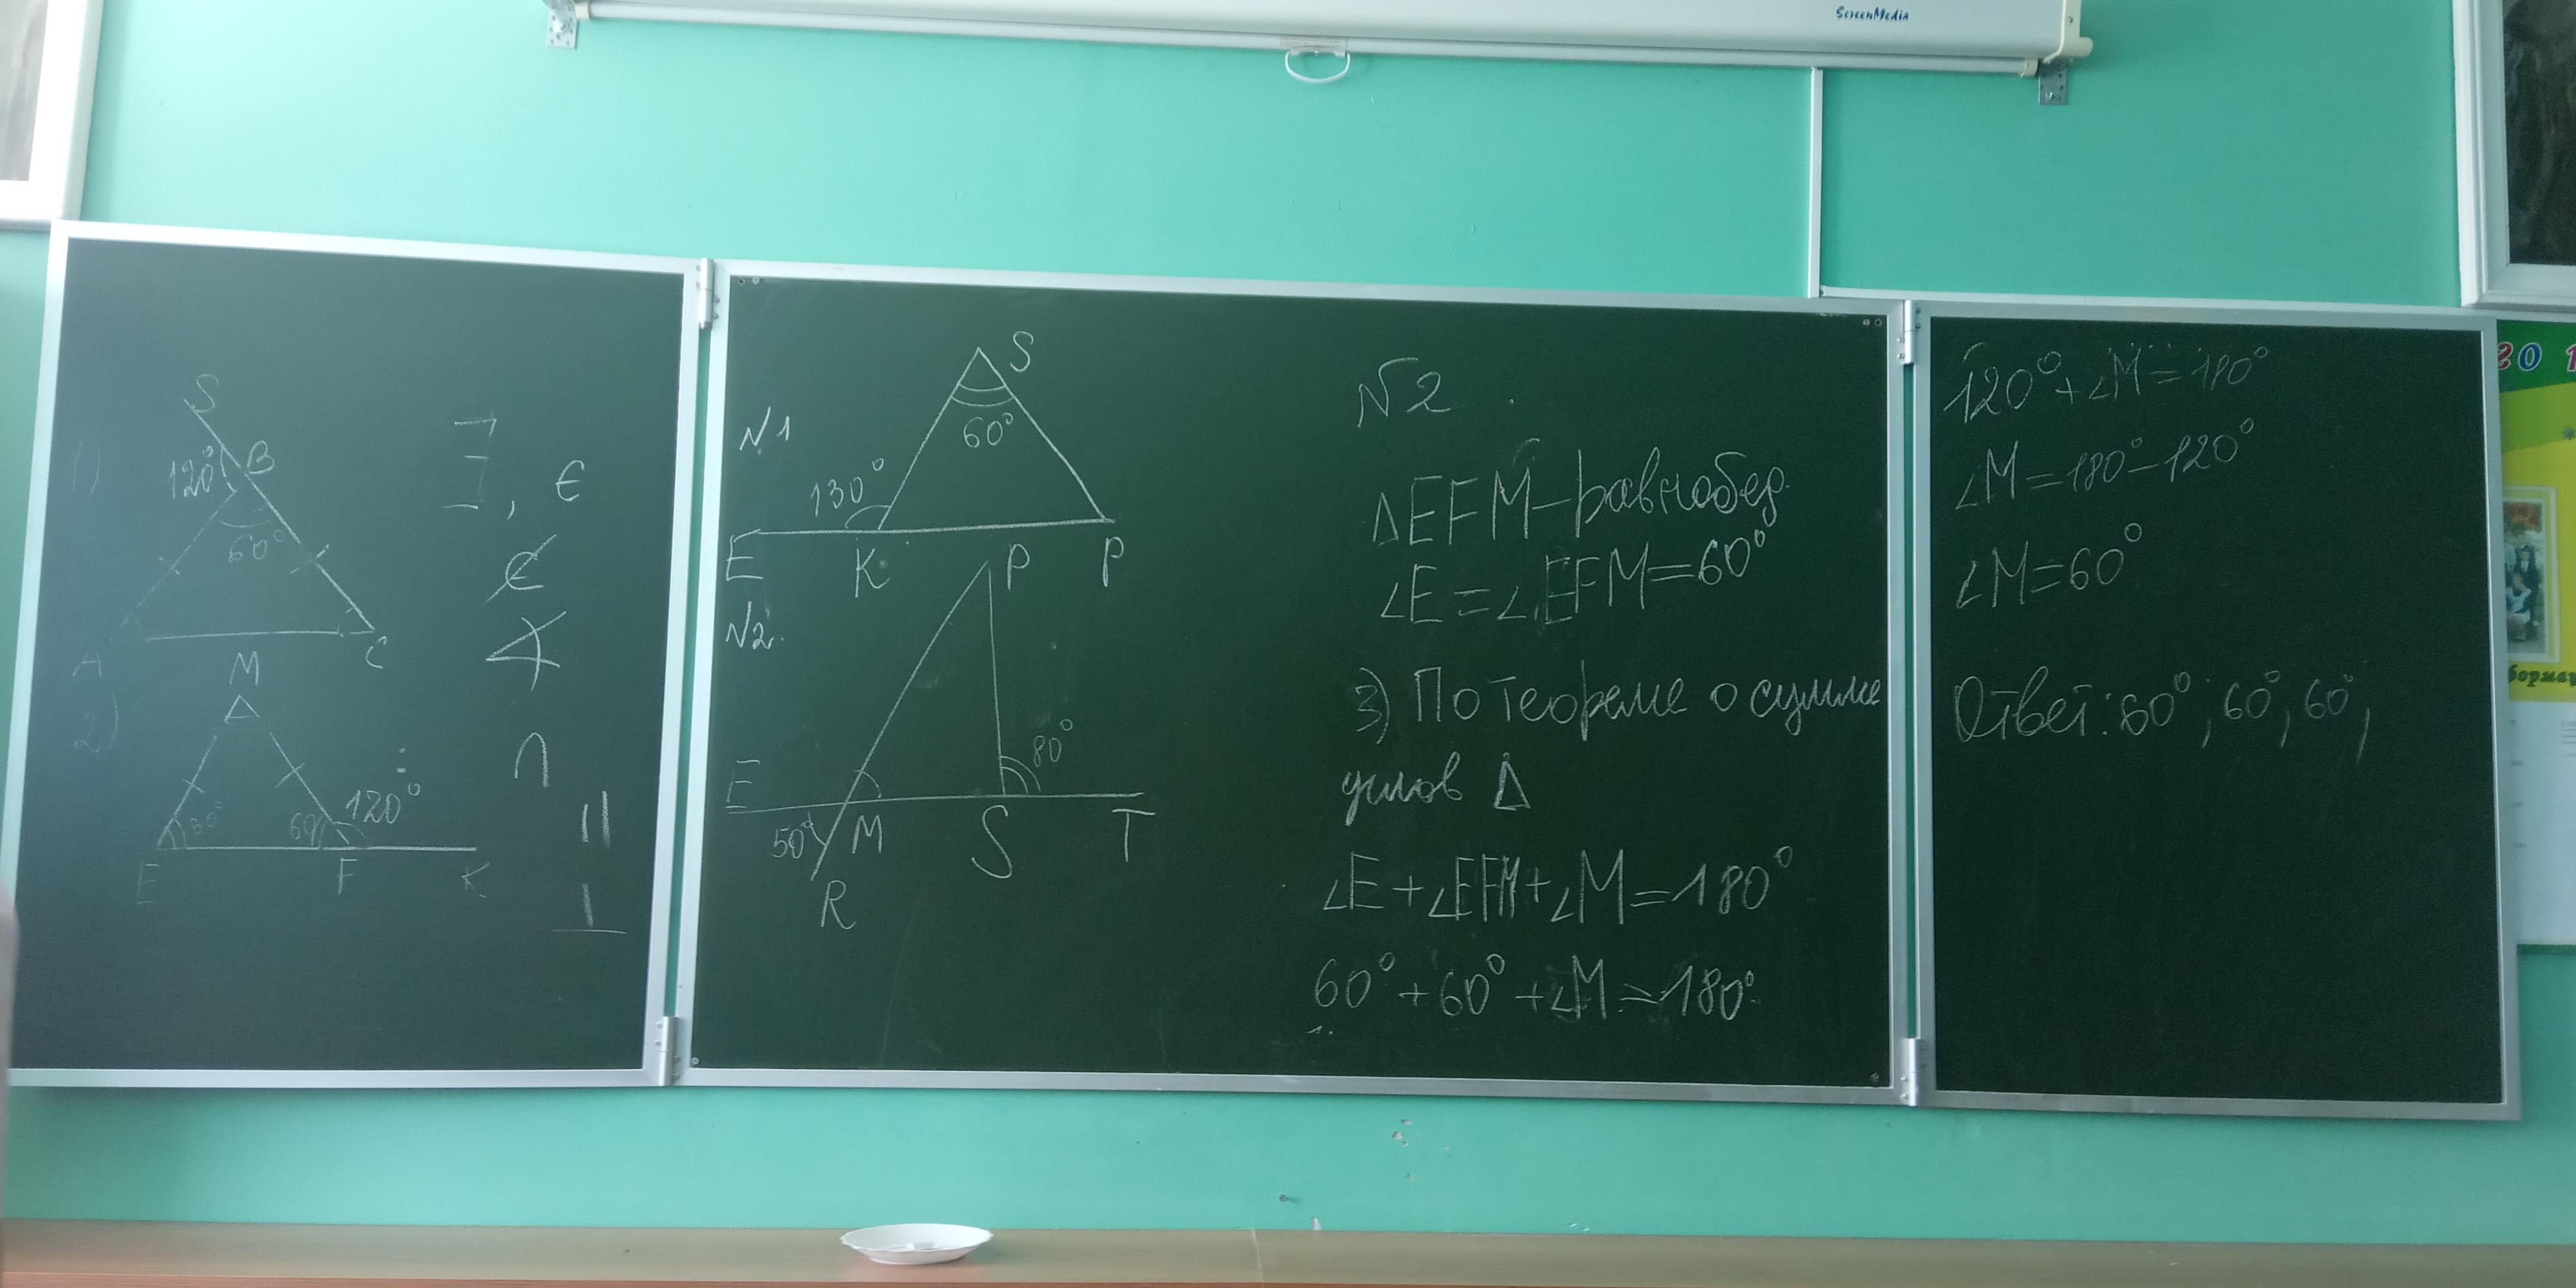 ScreenMedia
1)
S
120°
B
60°
A
C
2)
M
60°
60°
120°
E
F
K
∃, ∈
∉
∢
∩
||
⊥
N1
S
60°
130°
E
K
P
N2.
P
80°
E
50°
M
S
T
R
N2
ΔEFM – равнобед.
∠E = ∠EFM = 60°
3) По теореме о сумме
углов Δ
∠E + ∠EFM + ∠M = 180°
60° + 60° + ∠M = 180°
120° + ∠M = 180°
∠M = 180° – 120°
∠M = 60°
Ответ: 60°; 60°; 60°;
20 1